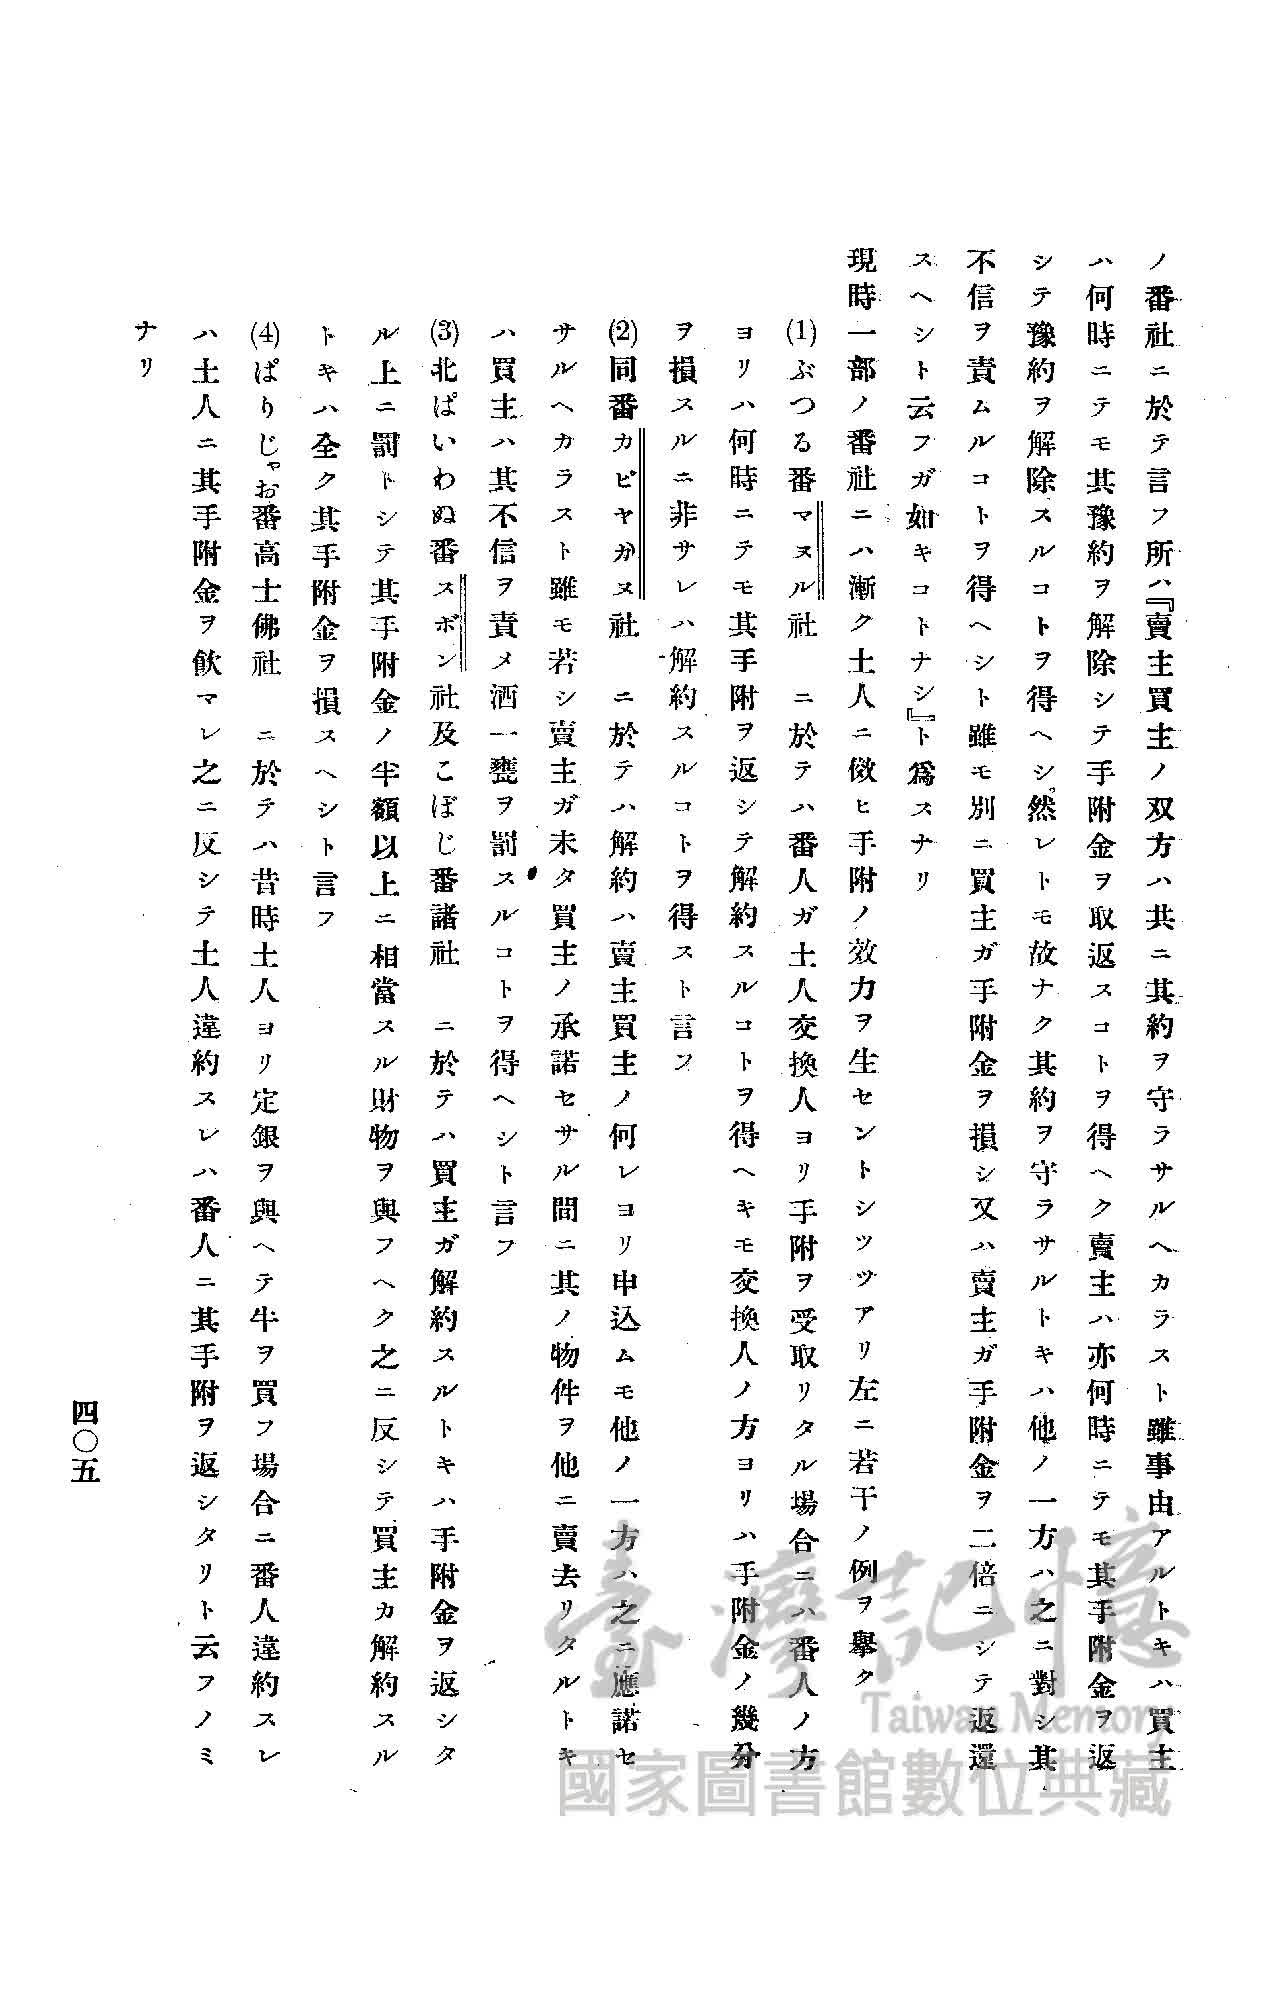 ノ番社ニ於テ言フ所ハ『賣主買主ノ双方ハ共ニ其約ヲ守ラサルヘカラスト雖事由アルトキハ買主
ハ何時ニテモ其豫約ヲ解除シテ手附金ヲ取返スコトヲ得ヘク賣主ハ亦何時ニテモ其手附金ヲ返
シテ豫約ヲ解除スルコトヲ得ヘシ然レトモ故ナク其約ヲ守ラサルトキハ他ノ一方ハ之ニ對シ其
不信ヲ責ムルコトヲ得ヘシト雖モ別ニ買主ガ手附金ヲ損シ又ハ賣主ガ手附金ヲ二倍ニシテ返還
スヘシト云フガ如キコトナシ』ト爲スナリ
現時一部ノ番社ニハ漸ク土人ニ倣ヒ手附ノ效力ヲ生セントシツツアリ左ニ若干ノ例ヲ擧ク
(1)ぶつる番マヌル社　ニ於テハ番人ガ土人交換人ヨリ手附ヲ受取リタル場合ニハ番人ノ方
ヨリハ何時ニテモ其手附ヲ返シテ解約スルコトヲ得ヘキモ交換人ノ方ヨリハ手附金ノ幾分
ヲ損スルニ非サレハ解約スルコトヲ得スト言フ
(2)同番カビヤガヌ社　ニ於テハ解約ハ賣主買主ノ何レヨリ申込ムモ他ノ一方ハ之ニ應諾セ
サルヘカラスト雖モ若シ賣主ガ未タ買主ノ承諾セサル間ニ其ノ物件ヲ他ニ賣去リタルトキ
ハ買主ハ其不信ヲ責メ酒一甕ヲ罰スルコトヲ得ヘシト言フ
(3)北ぱいわぬ番スボン社及こぼじ番諸社　ニ於テハ買主ガ解約スルトキハ手附金ヲ返シタ
ル上ニ罰トシテ其手附金ノ半額以上ニ相當スル財物ヲ與フヘク之ニ反シテ買主カ解約スル
トキハ全ク其手附金ヲ損スヘシト言フ
(4)ぱりじゃお番高士佛社　ニ於テハ昔時土人ヨリ定銀ヲ與ヘテ牛ヲ買フ場合ニ番人違約スレ
ハ土人ニ其手附金ヲ飮マレ之ニ反シテ土人違約スレハ番人ニ其手附ヲ返シタリト云フノミ
ナリ
四〇五
臺灣記憶
Taiwan Memory
國家圖書館數位典藏